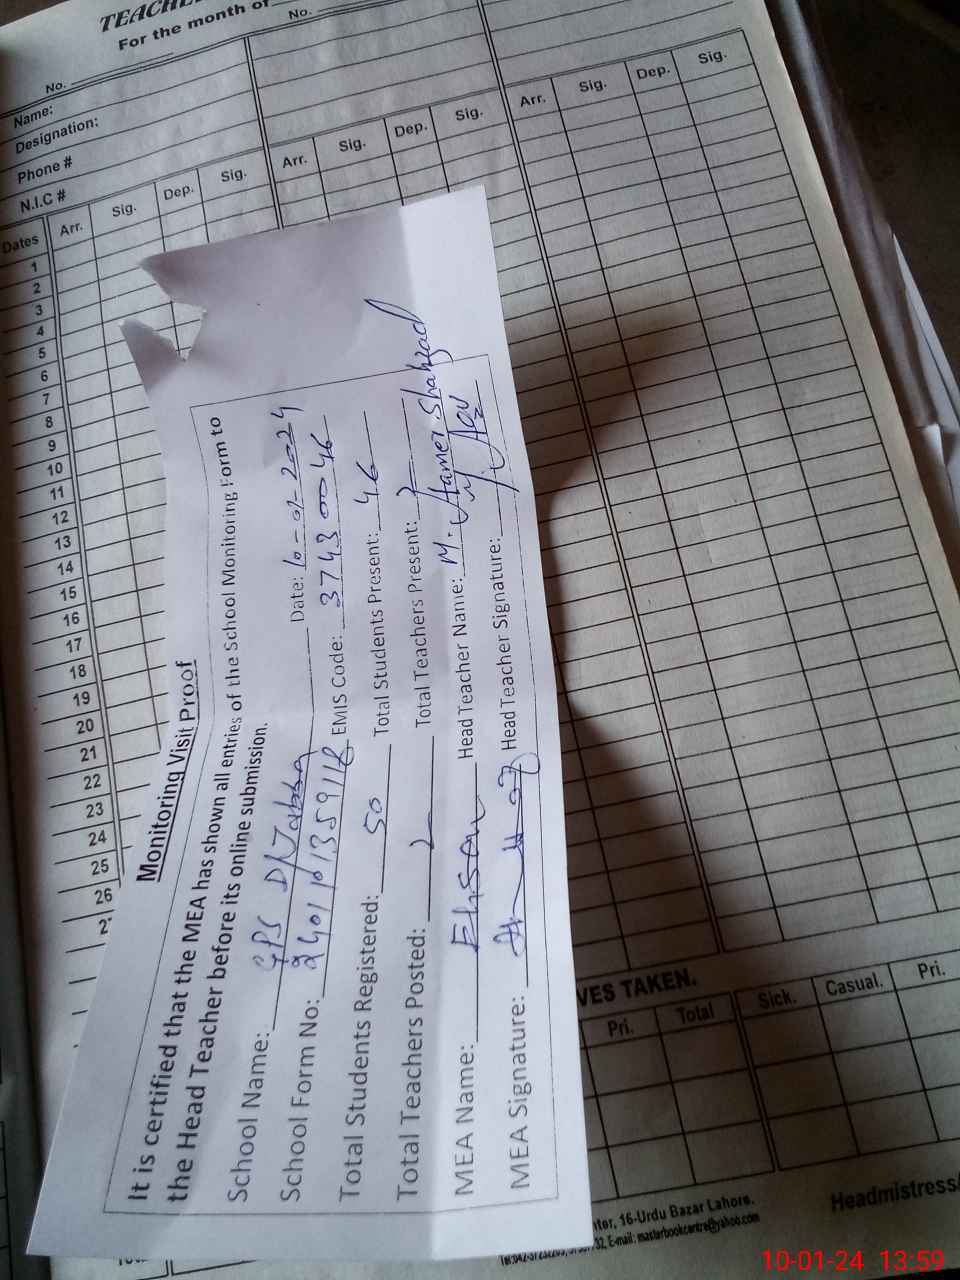 TEACHE
For the month of
No.
No.
Name:
Designation:
Phone #
N.I.C #
Dates Arr. Sig. Dep. Sig. Arr. Sig. Dep. Sig. Arr. Sig. Dep. Sig.
1
2
3
4
5
6
7
8
9
10
11
12
13
14
15
16
17
18
19
20
21
22
23
24
25
26
2
Monitoring Visit Proof
It is certified that the MEA has shown all entries of the School Monitoring Form to
the Head Teacher before its online submission.
School Name: GPS Date: 10-01-2024
School Form No: EMIS Code: 37430046
Total Students Registered: 50 Total Students Present: 46
Total Teachers Posted: 2 Total Teachers Present: 2
MEA Name: Ehsan Head Teacher Name: M. Aamer Shahzad
MEA Signature: Head Teacher Signature:
VES TAKEN.
Pri. Total Sick. Casual. Pri.
Headmistress/
nter, 16-Urdu Bazar Lahore.
E-mail: masterbookcentre@yahoo.com
10-01-24 13:59